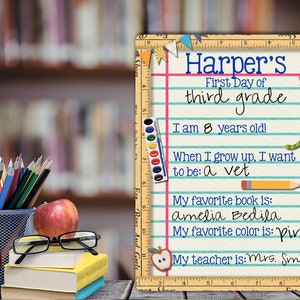 Harper's
First Day of
third grade
I am 8 years old!
When I grow up, I want
to be: a vet
My favorite book is:
amelia Bedilia
My favorite color is: pin
My teacher is: Mrs. Sm